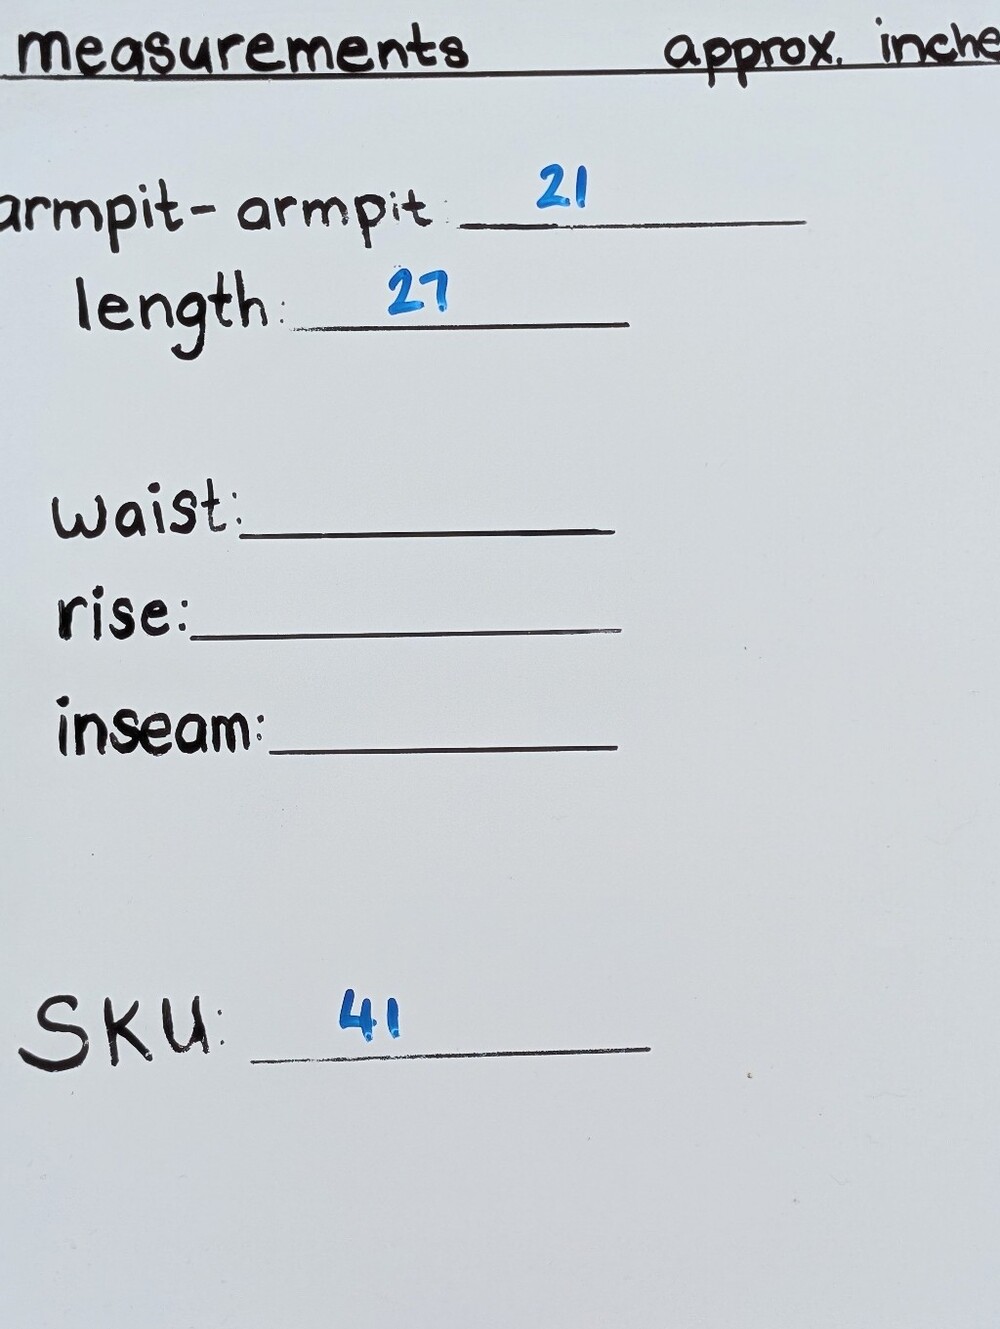 measurements approx. inche
armpit-armpit: 21
length: 27
waist:
rise:
inseam:
SKU: 41